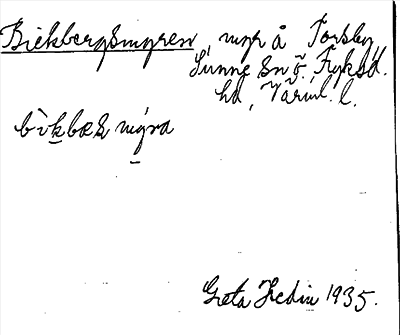 Biekbergsmyren, myr å Torsby
Sunne sn Ö. Fryksd.
hd, Värml. l.
bìkbæs mýra
Greta Hedin 1935.